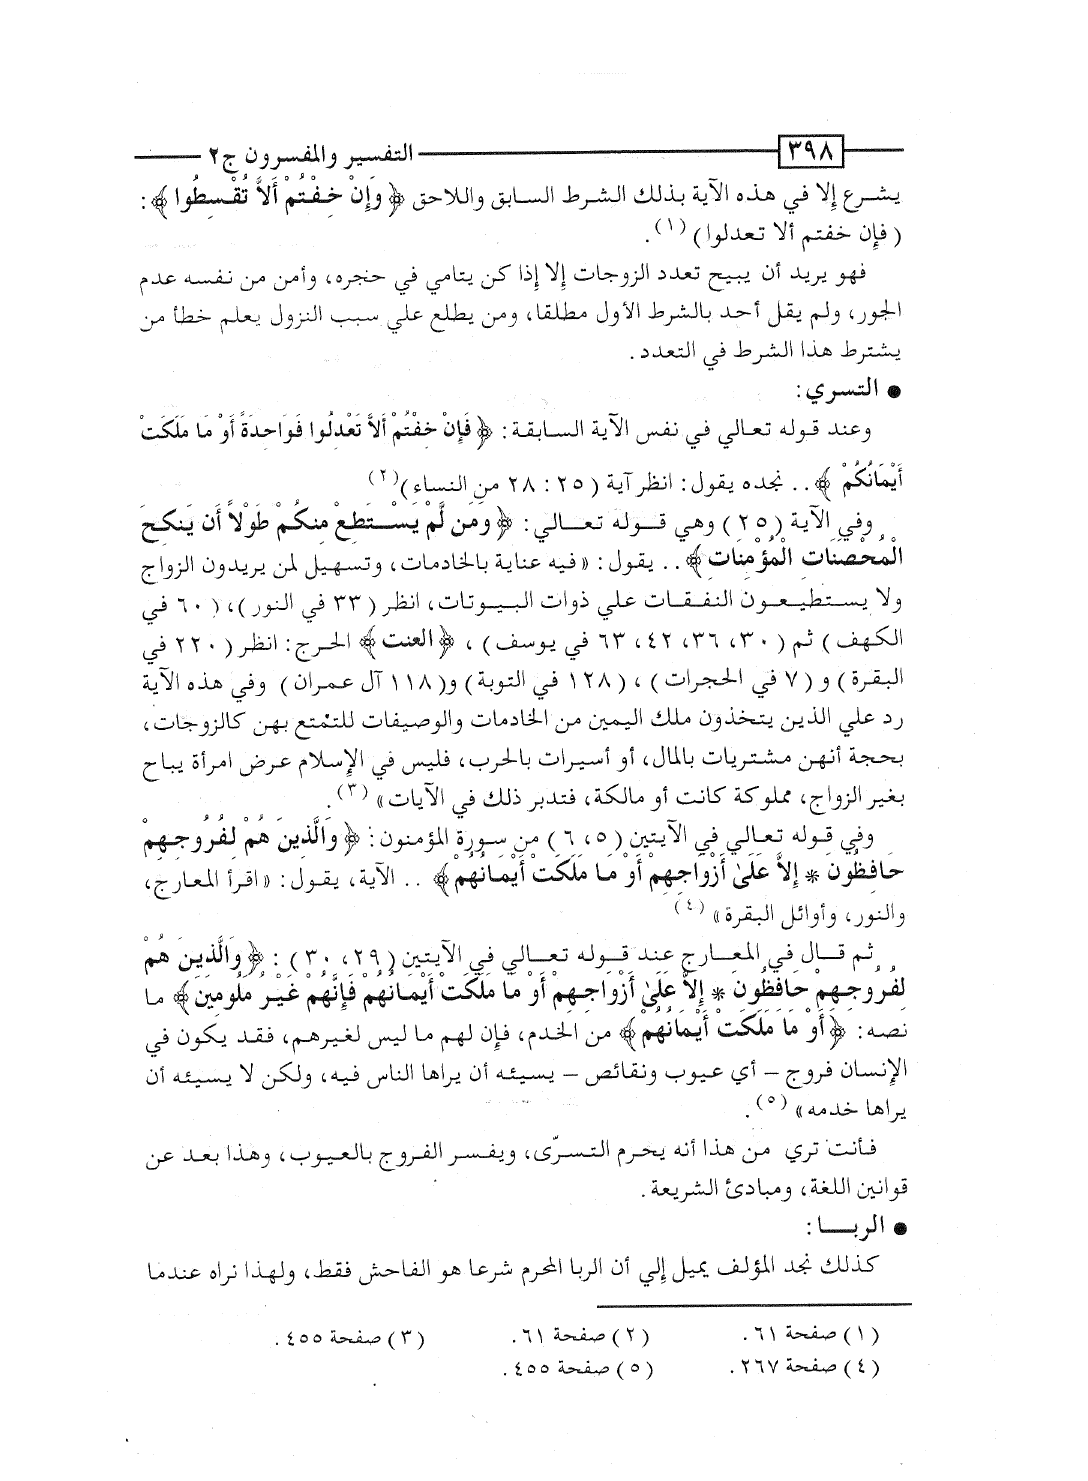 ٣٩٨ التفسير والمفسرون ج٢
يشرع إلا في هذه الآية بذلك الشرط السابق واللاحق ﴿ وَإِنْ خِفْتُمْ أَلاَّ تُقْسِطُوا ﴾ :
( فإن خفتم ألا تعدلوا ) (١) .
فهو يريد أن يبيح تعدد الزوجات إلا إذا كن يتامي في حنجره، وأمن من نفسه عدم
الجور، ولم يقل أحد بالشرط الأول مطلقا، ومن يطلع علي سبب النزول يعلم خطأ من
يشترط هذا الشرط في التعدد .
● التسري :
وعند قوله تعالي في نفس الآية السابقة : ﴿ فَإِنْ خِفْتُمْ أَلاَّ تَعْدِلُوا فَوَاحِدَةً أَوْ مَا مَلَكَتْ
أَيْمَانُكُمْ ﴾ .. نجده يقول : انظر آية ( ٢٥ : ٢٨ من النساء ) (٢)
وفي الآية ( ٢٥ ) وهي قوله تعالي : ﴿ وَمَن لَّمْ يَسْتَطِعْ مِنكُمْ طَوْلاً أَن يَنكِحَ
الْمُحْصَنَاتِ الْمُؤْمِنَاتِ ﴾ .. يقول : « فيه عناية بالخادمات، وتسهيل لمن يريدون الزواج
ولا يستطيعون النفقات علي ذوات البيوتات، انظر ( ٣٣ في النور )، ( ٦٠ في
الكهف ) ثم ( ٣٠، ٣٦، ٤٢، ٦٣ في يوسف ) ، ﴿ العنت ﴾ الحرج : انظر ( ٢٢٠ في
البقرة ) و ( ٧ في الحجرات ) ، ( ١٢٨ في التوبة ) و( ١١٨ آل عمران ) وفي هذه الآية
رد علي الذين يتخذون ملك اليمين من الخادمات والوصيفات للتمتع بهن كالزوجات،
بحجة أنهن مشتريات بالمال، أو أسيرات بالحرب، فليس في الإسلام عرض امرأة يباح
بغير الزواج، مملوكة كانت أو مالكة، فتدبر ذلك في الآيات » (٣) .
وفي قوله تعالي في الآيتين ( ٥، ٦ ) من سورة المؤمنون : ﴿ وَالَّذِينَ هُمْ لِفُرُوجِهِمْ
حَافِظُونَ * إِلاَّ عَلَىٰ أَزْوَاجِهِمْ أَوْ مَا مَلَكَتْ أَيْمَانُهُمْ ﴾ .. الآية، يقول : « اقرأ المعارج،
والنور، وأوائل البقرة » (٤)
ثم قال في المعارج عند قوله تعالي في الآيتين ( ٢٩، ٣٠ ) : ﴿ وَالَّذِينَ هُمْ
لِفُرُوجِهِمْ حَافِظُونَ * إِلاَّ عَلَىٰ أَزْوَاجِهِمْ أَوْ مَا مَلَكَتْ أَيْمَانُهُمْ فَإِنَّهُمْ غَيْرُ مَلُومِينَ ﴾ ما
نصه : ﴿ أَوْ مَا مَلَكَتْ أَيْمَانُهُمْ ﴾ من الخدم، فإن لهم ما ليس لغيرهم، فقد يكون في
الإنسان فروج – أي عيوب ونقائص – يسيئه أن يراها الناس فيه، ولكن لا يسيئه أن
يراها خدمه » (٥) .
فأنت تري من هذا أنه يحرم التسرّى، ويفسر الفروج بالعيوب، وهذا بعد عن
قوانين اللغة، ومبادئ الشريعة .
● الربا :
كذلك نجد المؤلف يميل إلي أن الربا المحرم شرعا هو الفاحش فقط، ولهذا نراه عندما
( ١ ) صفحة ٦١ . ( ٢ ) صفحة ٦١ . ( ٣ ) صفحة ٤٥٥ .
( ٤ ) صفحة ٢٦٧ . ( ٥ ) صفحة ٤٥٥ .